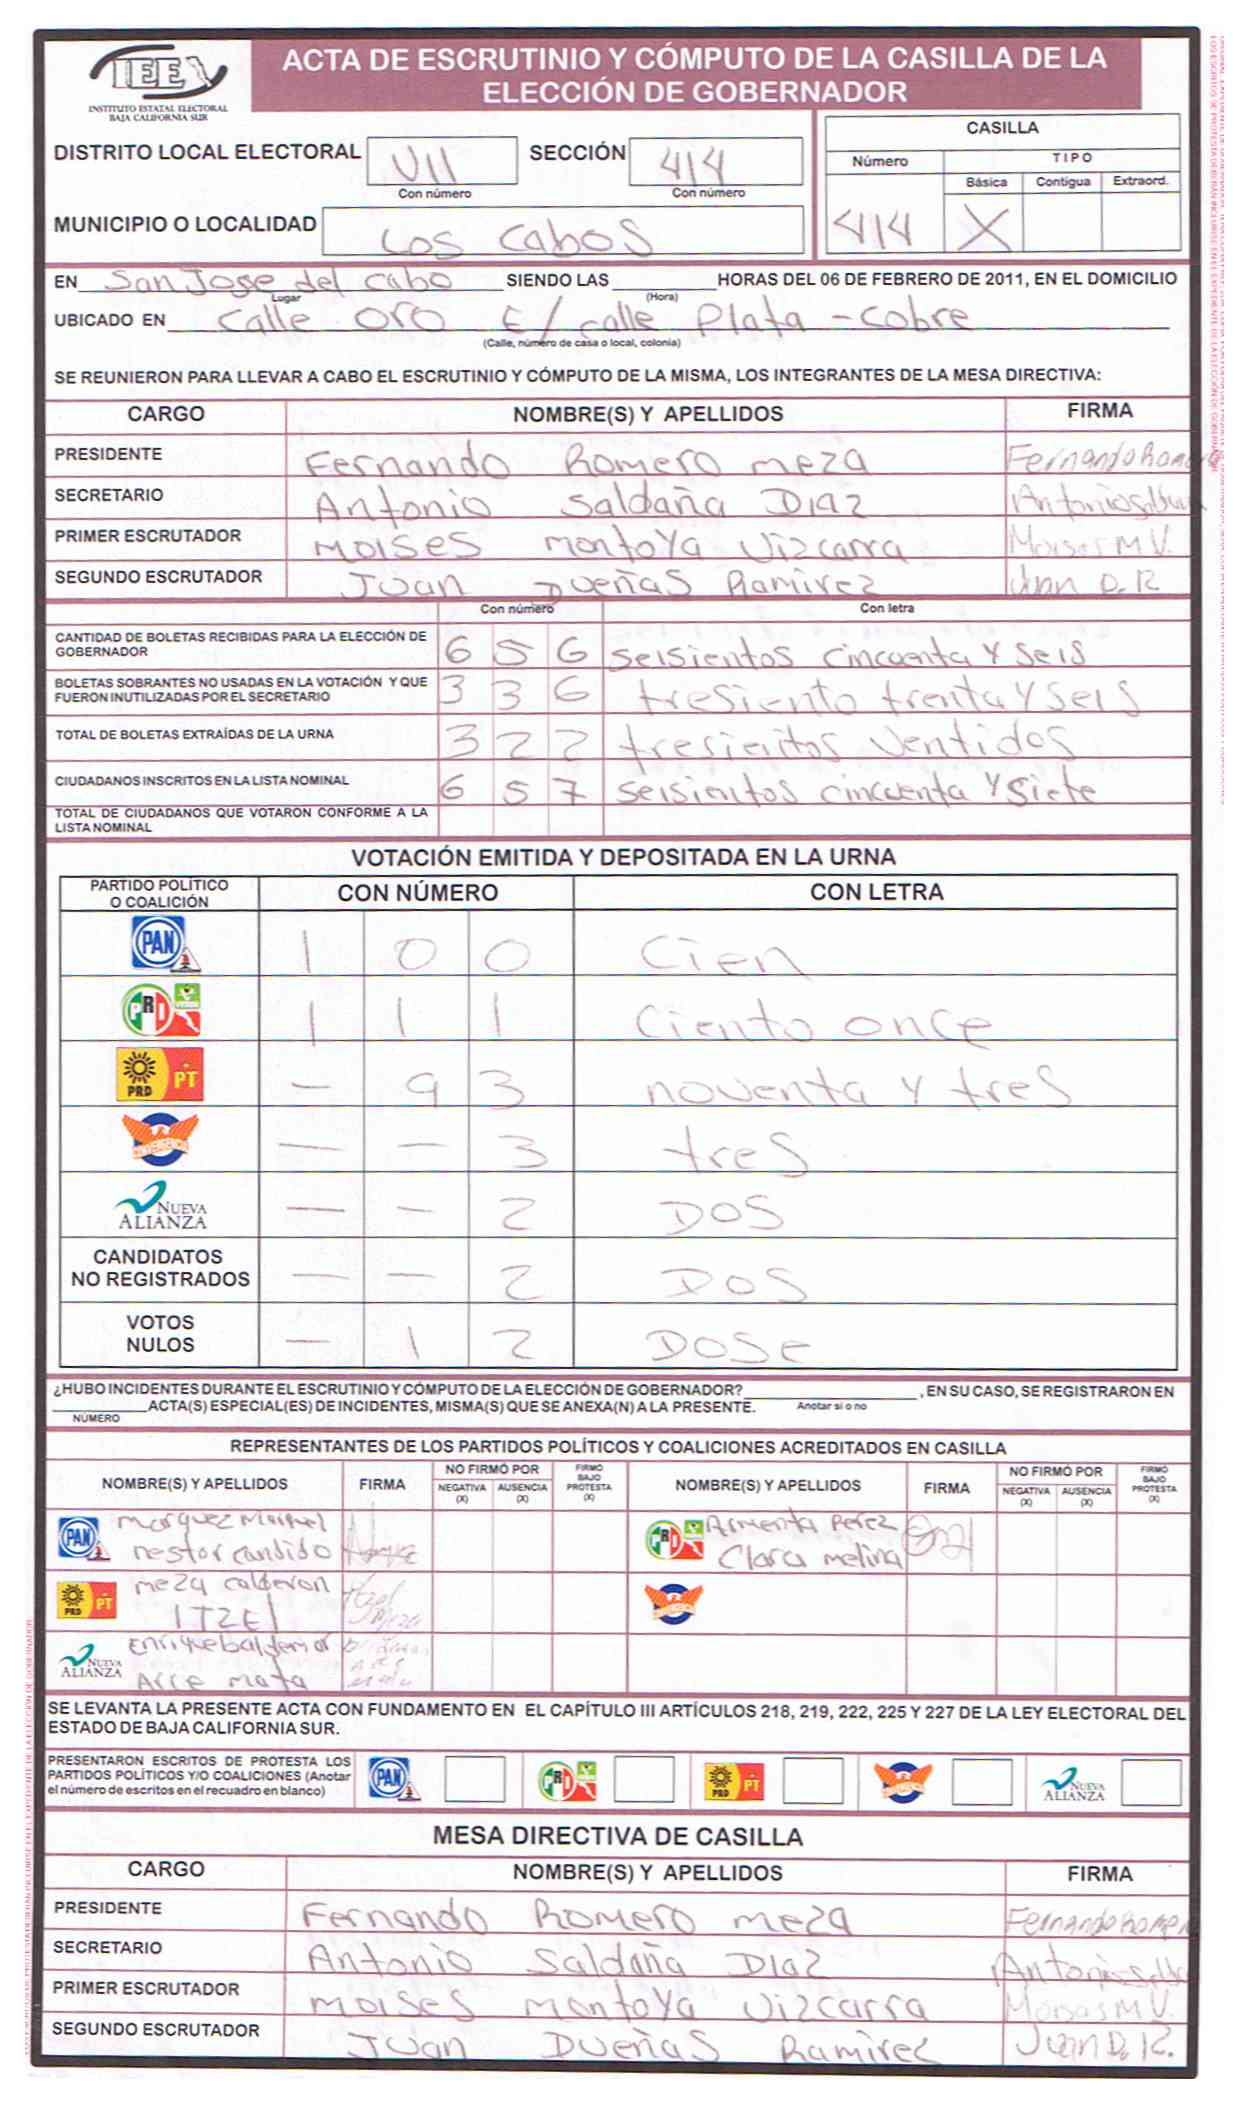 IEE
INSTITUTO ESTATAL ELECTORAL
BAJA CALIFORNIA SUR
ACTA DE ESCRUTINIO Y CÓMPUTO DE LA CASILLA DE LA
ELECCIÓN DE GOBERNADOR
DISTRITO LOCAL ELECTORAL VII SECCIÓN 414
Con número Con número
MUNICIPIO O LOCALIDAD Los Cabos
CASILLA
Número TIPO
Básica Contigua Extraord.
414 X
EN San Jose del Cabo SIENDO LAS HORAS DEL 06 DE FEBRERO DE 2011, EN EL DOMICILIO
Lugar (Hora)
UBICADO EN Calle Oro E/ calle Plata - Cobre
(Calle, número de casa o local, colonia)
SE REUNIERON PARA LLEVAR A CABO EL ESCRUTINIO Y CÓMPUTO DE LA MISMA, LOS INTEGRANTES DE LA MESA DIRECTIVA:
CARGO NOMBRE(S) Y APELLIDOS FIRMA
PRESIDENTE Fernando Romero meza Fernando Romero
SECRETARIO Antonio Saldaña Diaz Antonio
PRIMER ESCRUTADOR Moises montoya Vizcarra Moises M V.
SEGUNDO ESCRUTADOR Juan Dueñas Ramirez Juan D. R
Con número Con letra
CANTIDAD DE BOLETAS RECIBIDAS PARA LA ELECCIÓN DE
GOBERNADOR 6 5 6 seisientos cincuenta y seis
BOLETAS SOBRANTES NO USADAS EN LA VOTACIÓN Y QUE
FUERON INUTILIZADAS POR EL SECRETARIO 3 3 6 tresiento trenta y seis
TOTAL DE BOLETAS EXTRAÍDAS DE LA URNA 3 2 2 tresientos ventidos
CIUDADANOS INSCRITOS EN LA LISTA NOMINAL 6 5 7 seisientos cincuenta y siete
TOTAL DE CIUDADANOS QUE VOTARON CONFORME A LA
LISTA NOMINAL
VOTACIÓN EMITIDA Y DEPOSITADA EN LA URNA
PARTIDO POLÍTICO
O COALICIÓN CON NÚMERO CON LETRA
PAN 1 0 0 Cien
PRI 1 1 1 Ciento once
PRD PT - 9 3 noventa y tres
CONVERGENCIA - - 3 tres
NUEVA
ALIANZA - - 2 DOS
CANDIDATOS
NO REGISTRADOS - - 2 DOS
VOTOS
NULOS - 1 2 DOSe
¿HUBO INCIDENTES DURANTE EL ESCRUTINIO Y CÓMPUTO DE LA ELECCIÓN DE GOBERNADOR? , EN SU CASO, SE REGISTRARON EN
ACTA(S) ESPECIAL(ES) DE INCIDENTES, MISMA(S) QUE SE ANEXA(N) A LA PRESENTE. Anotar si o no
NÚMERO
REPRESENTANTES DE LOS PARTIDOS POLÍTICOS Y COALICIONES ACREDITADOS EN CASILLA
NOMBRE(S) Y APELLIDOS FIRMA NO FIRMÓ POR NEGATIVA (X) AUSENCIA (X) FIRMÓ BAJO PROTESTA (X) NOMBRE(S) Y APELLIDOS FIRMA NO FIRMÓ POR NEGATIVA (X) AUSENCIA (X) FIRMÓ BAJO PROTESTA (X)
PAN marquez
nestor candido
PRI Armenta Perez
Clara melina
PRD PT meza calderon
ITZEL
NUEVA
ALIANZA Enrique
Arce mata
SE LEVANTA LA PRESENTE ACTA CON FUNDAMENTO EN EL CAPÍTULO III ARTÍCULOS 218, 219, 222, 225 Y 227 DE LA LEY ELECTORAL DEL
ESTADO DE BAJA CALIFORNIA SUR.
PRESENTARON ESCRITOS DE PROTESTA LOS
PARTIDOS POLÍTICOS Y/O COALICIONES (Anotar
el número de escritos en el recuadro en blanco)
PAN PRI PRD PT NUEVA ALIANZA
MESA DIRECTIVA DE CASILLA
CARGO NOMBRE(S) Y APELLIDOS FIRMA
PRESIDENTE Fernando Romero meza Fernando Romero
SECRETARIO Antonio Saldaña Diaz Antonio
PRIMER ESCRUTADOR moises montoya Vizcarra Moises M V.
SEGUNDO ESCRUTADOR Juan Dueñas Ramirez Juan D. R.